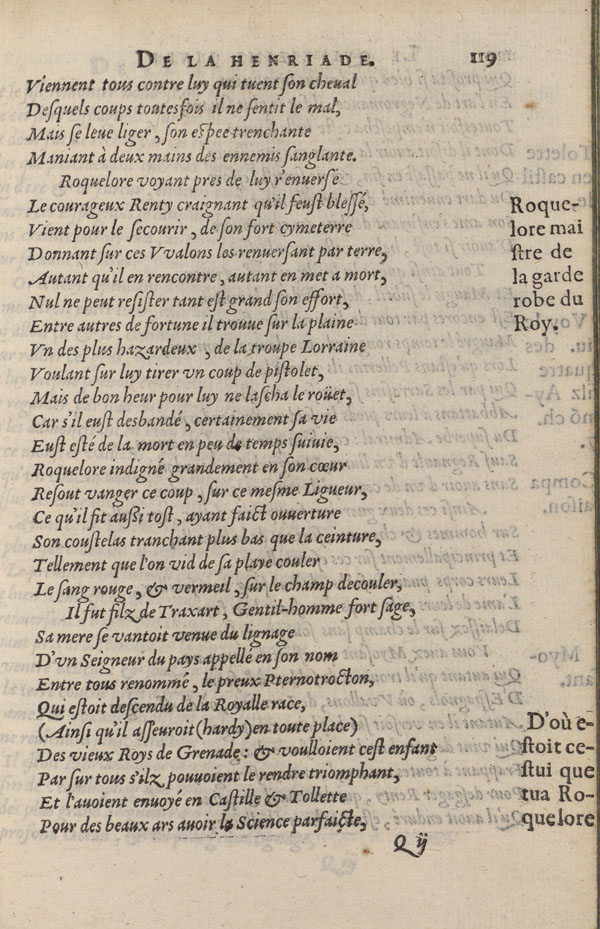 DE LA HENRIADE. 119
Viennent tous contre luy qui tuent ſon cheual
Deſquels coups toutesfois il ne ſentit le mal,
Mais ſe leue liger, ſon eſpee trenchante
Maniant à deux mains des ennemis ſanglante.
Roquelore voyant pres de luy r'enuerſé
Le courageux Renty craignant qu'il feuſt bleſſé,
Vient pour le ſecourir, de ſon fort cymeterre
Donnant ſur ces Vvalons les renuerſant par terre,
Autant qu'il en rencontre, autant en met a mort,
Nul ne peut reſiſter tant eſt grand ſon effort,
Entre autres de fortune il trouue ſur la plaine
Vn des plus hazardeux, de la troupe Lorraine
Voulant ſur luy tirer vn coup de piſtolet,
Mais de bon heur pour luy ne laſcha le roüet,
Car s'il euſt desbandé, certainement ſa vie
Euſt eſté de la mort en peu de temps ſuiuie,
Roquelore indigné grandement en ſon cœur
Reſout vanger ce coup, ſur ce meſme Ligueur,
Ce qu'il fit auſſi toſt, ayant faict ouuerture
Son couſtelas tranchant plus bas que la ceinture,
Tellement que l'on vid de ſa playe couler
Le ſang rouge, & vermeil, ſur le champ decouler,
Il fut filz de Traxart, Gentil-homme fort ſage,
Sa mere ſe vantoit venue du lignage
D'vn Seigneur du pays appellé en ſon nom
Entre tous renommé, le preux Pternotrocton,
Qui eſtoit deſcendu de la Royalle race,
(Ainſi qu'il aſſeuroit (hardy) en toute place)
Des vieux Roys de Grenade: & voulloient ceſt enfant
Par ſur tous s'ilz pouuoient le rendre triomphant,
Et l'auoient enuoyé en Caſtille & Tollette
Pour des beaux ars auoir la Science parfaicte,
Q ij
Roque-
lore mai
ſtre de
la garde
robe du
Roy.
D'où e-
ſtoit ce-
ſtui que
tua Ro-
quelore